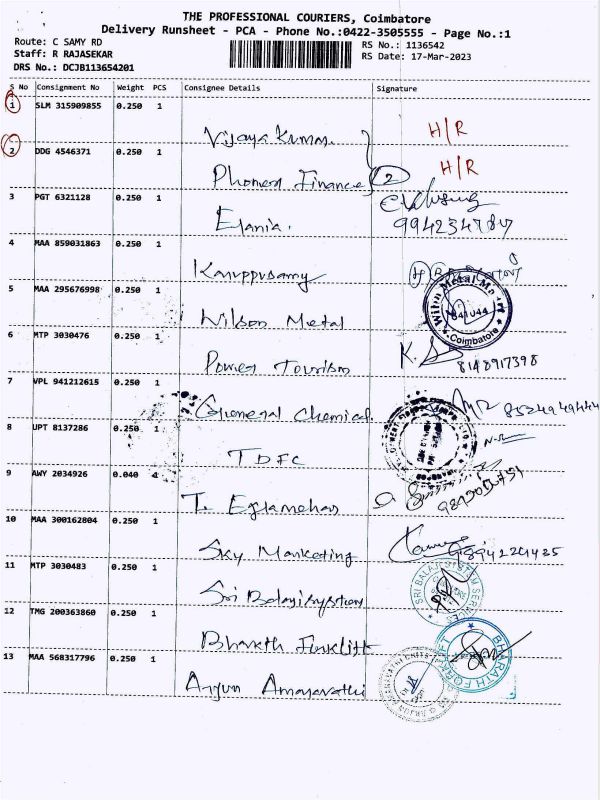 THE PROFESSIONAL COURIERS, Coimbatore
Delivery Runsheet - PCA - Phone No.:0422-3505555 - Page No.:1
Route: C SAMY RD
Staff: R RAJASEKAR
DRS No.: DCJB113654201
RS No.: 1136542
RS Date: 17-Mar-2023
S No Consignment No Weight PCS Consignee Details Signature
1 SLM 315909855 0.250 1
Vijaya Kumar. H/R
2 DDG 4546371 0.250 1
Finance 2 H/R
3 PGT 6321128 0.250 1
4 MAA 859031863 0.250 1
Karuppusamy
5 MAA 295676998 0.250 1
Wilson Metal
641044
Coimbatore
6 MTP 3030476 0.250 1
Power Tourism K. 8148917398
7 VPL 941212615 0.250 1
General Chemical
8 UPT 8137286 0.250 1
TDFC
9 AWY 2034926 0.040
10 MAA 300162804 0.250 1
Sky Marketing
11 MTP 3030483 0.250 1
Sri Balaji System
SRI BALAJI SYSTEM SERVICES
12 TMG 200363860 0.250 1
Bharath Forklift
BHARATH FORKLIFT
13 MAA 568317796 0.250 1
Arjun Amaravathi